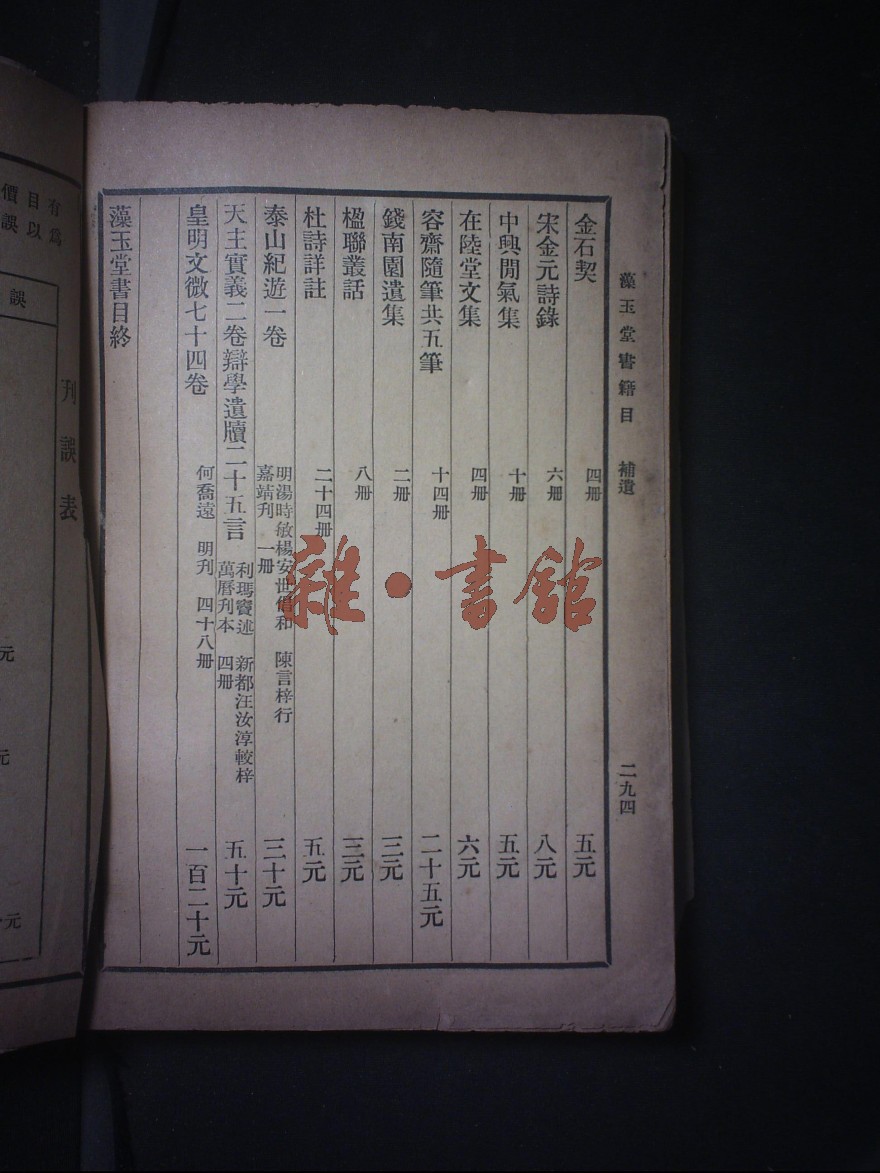 藻玉堂書籍目 補遺 二九四
金石契 四册 五元
宋金元詩錄 六册 八元
中興閒氣集 十册 五元
在陸堂文集 四册 六元
容齋隨筆共五筆 十四册 二十五元
錢南園遺集 二册 三元
楹聯叢話 八册 三元
杜詩詳註 二十四册 五元
泰山紀遊一卷 明湯時敏楊安世倡和 陳言梓行 嘉靖刋 一册 三十元
天主實義二卷辯學遺牘二十五言 利瑪竇述 新都汪汝淳較梓 萬曆刋本 四册 五十元
皇明文微七十四卷 何喬遠 明刋 四十八册 一百二十元
藻玉堂書目終
雜·書館
刋誤表
有爲
目以
價誤
誤
元
元
元